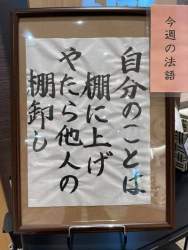 今週の法語
自分のことは
棚に上げ
やたら他人の
棚卸し